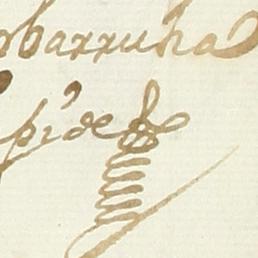 barruha
pide